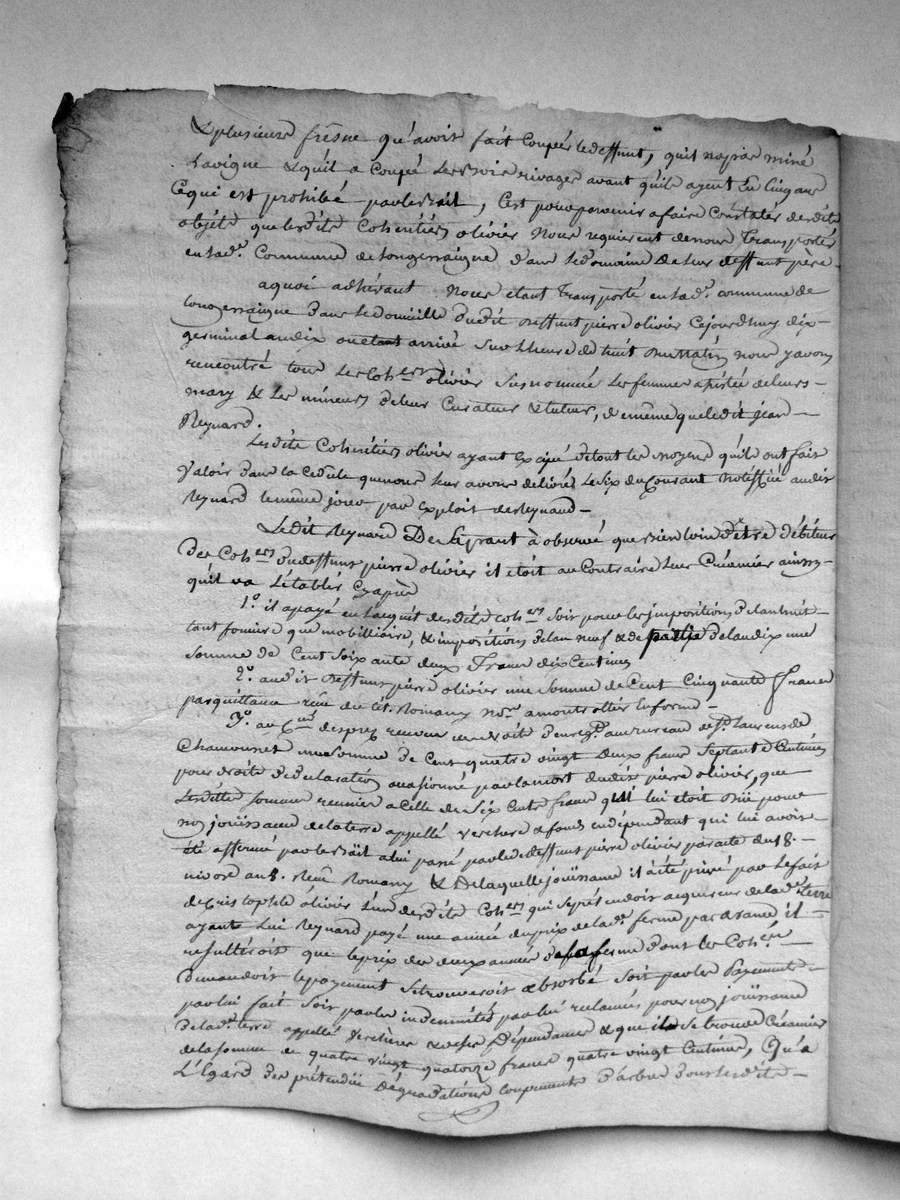 & plusieurs frêsne qu'avoit fait Coupée le deffunt, quil na pas miné
Lavigne & quil a Coupée les rivages avant quils ayent
Cequi est prohibé parlebail, C'est pour parvenir a faire Constater desdits
objets que lesdits Cohéritiers olivier Nous requierent denous Transporter
en lad.e Commune de longessaigne dans le domaine de leur deffunt père
aquoi adhérant Nous etant Transporté en lad.e commune de
Longessaigne dans le domicille dudit deffunt pierre olivier Cejourdhuy dix
germinal an dix ou etant arrivée sur Lheure de huit du matin nous y avons
rencontré tous les Coh.ers olivier susnommée les femmes assistée de leurs
mary & les mineurs de leur Curateur & tuteur, de même queledit jean
Reynard.
Lesdits Cohéritiers olivier ayant Excipé de tout les moyens quils ont fait
Valoir dans la Cédule que nous leur avons délivrée le six du Courant Notiffiée audit
Reynard le même jour par exploit de Reynaud
Ledit Reynard Deffiant à observé que bien loin d'être débiteur
des Coh.ers du deffunt pierre olivier il étoit au Contraire leur Créancier ainssy
quil va L'établir Cyaprès
1.o il a payé en Lacquit desdits coh.ers soit pour les impositions de lan huit
tant fonsiere que mobilliaire, & impositions de lan neuf & de partie de lan dix une
somme de Cent soixante deux francs dix Centimes
2.o audit deffunt pierre olivier une somme de Cent Cinquante francs
par quittance reçue du cit. Romany no.re a montrottier en forme
3.o au C.en despres receveur des droits denreg.t au bureau de s.t laurens de
Chamousset une somme de Cent quatre vingt deux francs septante Centimes
pour droits de déclaration occasionné par la mort dudit pierre olivier, que
lesdittes sommes reunies a celle de six Cents francs qui lui étoit dûe pour
non jouissance de la terre appellé verchere & fonds endépendant qui lui avoit
été affermé par le bail a lui passé par ledit deffunt pierre olivier par acte du 18
nivose an 8. reçu Romany & Delaquelle jouissance il a été privé par le fait
de Cristophle olivier L'un desdits Coh.ers qui sepretendoit acquereur de lad.e terre
ayant Lui Reynard payé une année du prix de lad.e ferme par avance il
resulteroit que le prix des deux années de sa ferme dont les Coh.ers
demandoit le payement se trouveroit absorbé soit par les Payements
par lui fait soit par les indemnités par lui reclamés pour non jouissance
De lad.e terre appellé Verchere & ses Dépendances & que il se trouve Créancier
de la somme de quatre vingt quatorze francs quatre vingt Centimes, Qu'a
L'Egard des prétendües Dégradations coupements d'arbres dont lesdits